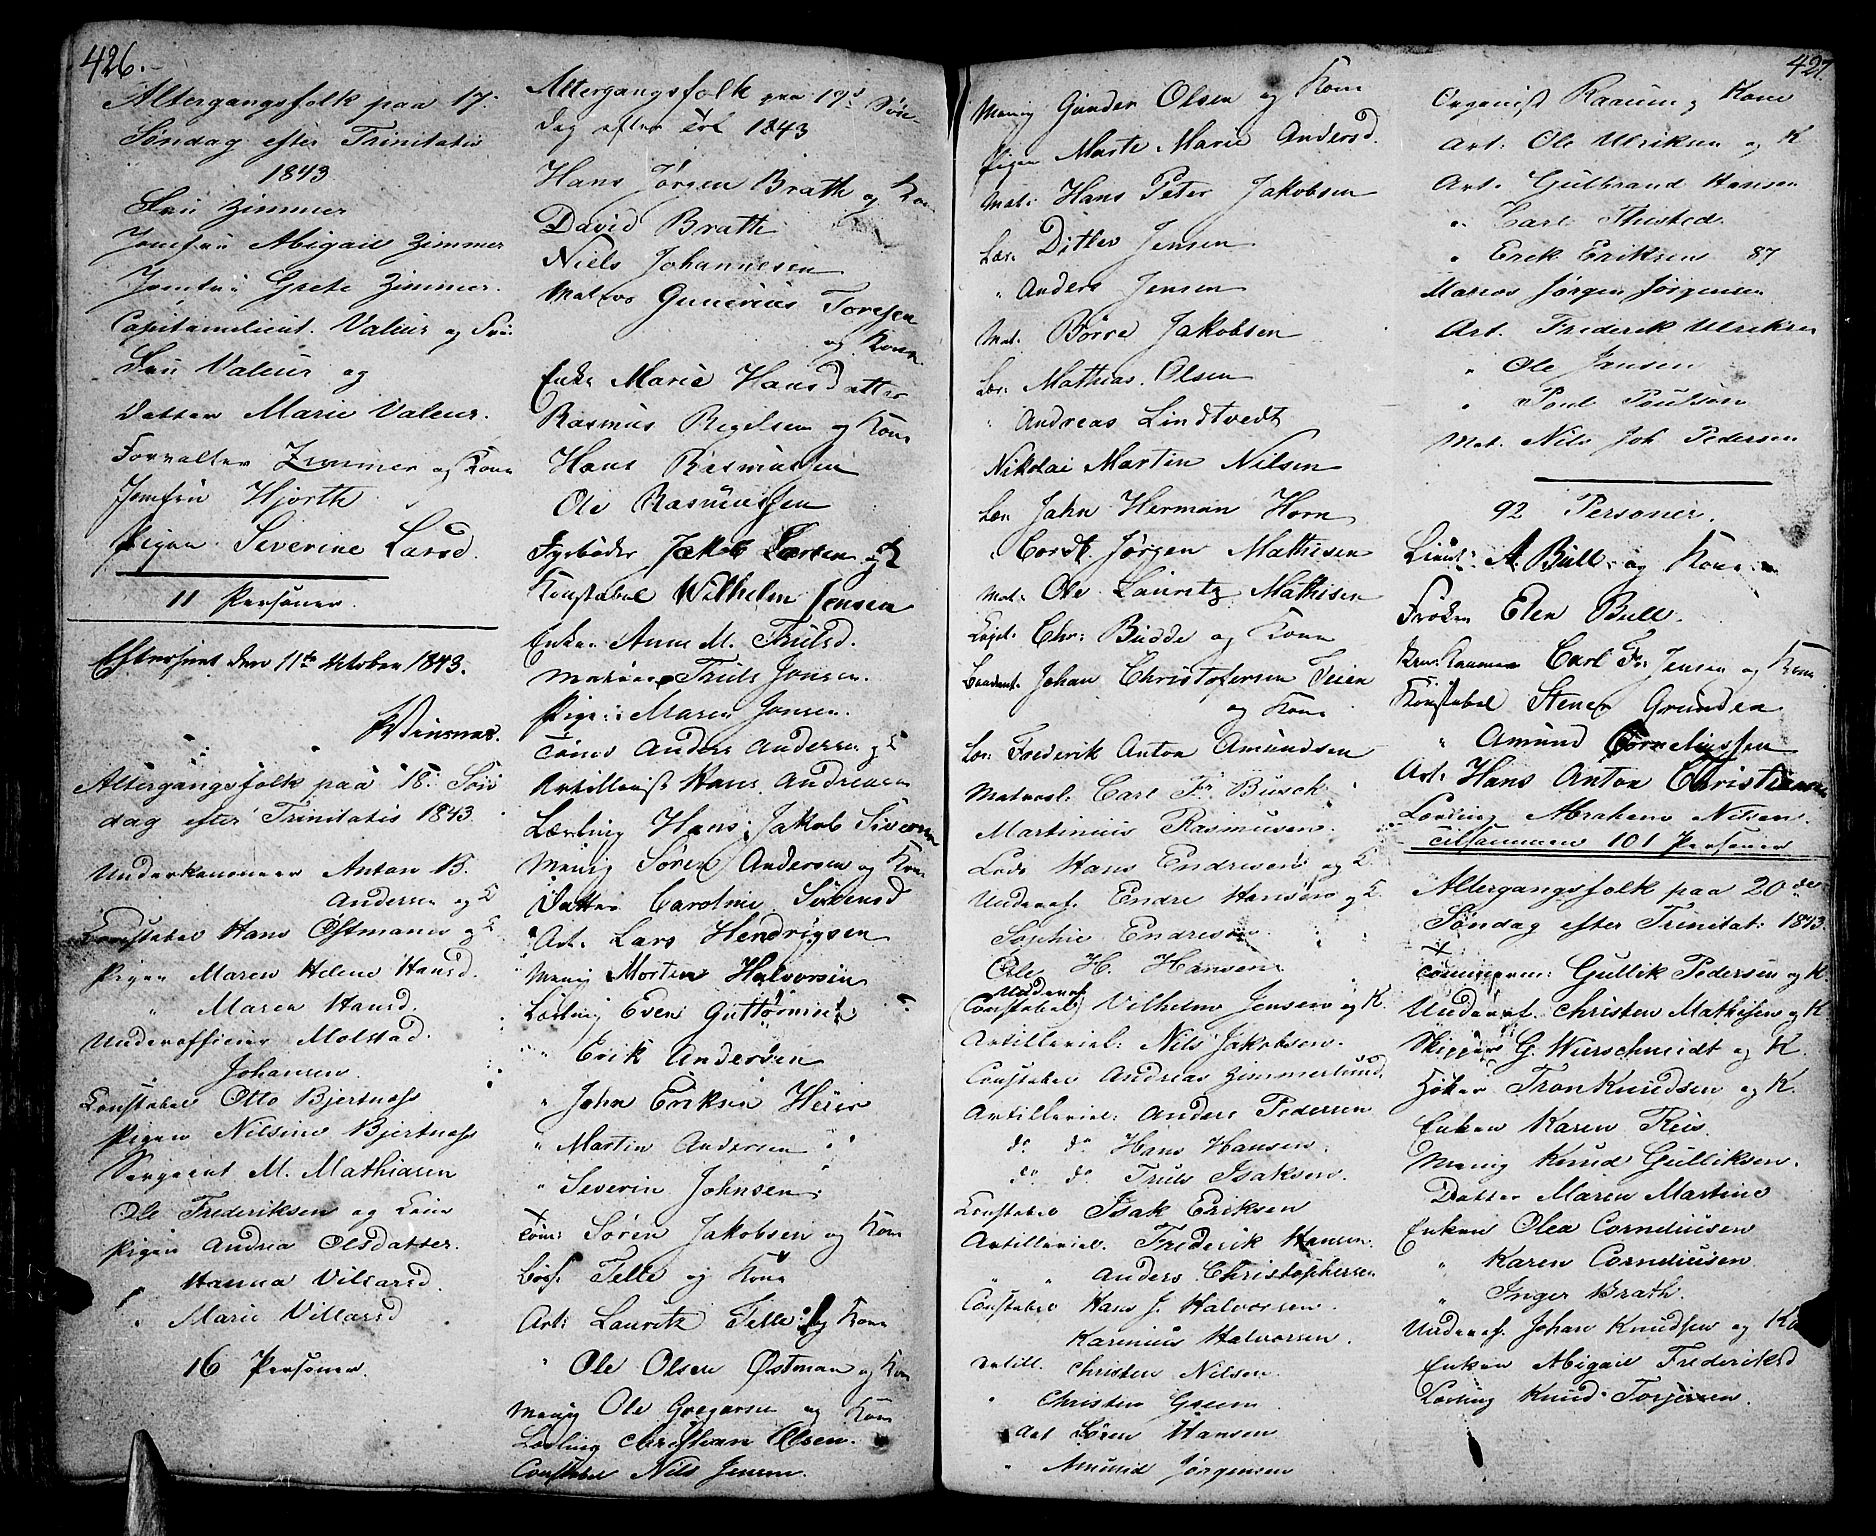 426.
Altergangsfolk paa 17.
Søndag efter Trinitatis
1843
Fru Zimmer
Jomfru Abigael Zimmer
Jomfru Grete Zimmer.
Capitainlieut. Valeur og Fru
Fru Valeur og
Datter Marie Valeur.
Forvalter Zimmer og Kone
Jomfru Hjorth
Pigen Severine Larsd.
11 Personer.
Efterseet den 11te October 1843.
Winsnes.
Altergangsfolk paa 18. Søn
dag efter Trinitatis 1843
Underkanoneer Anton B.
Andersen og K
Constabel Hans Østmann og K
Pigen Maren Helene Hansd.
" Maren Hansd.
Underofficier Molstad.
Johansen
Constabel Otto Bjertnæss
Pigen Nilsine Bjertnæss
Sergeant M. Mathiasen
Ole Frederiksen og Kone
Pigen Andrea Olsdatter.
" Hanna Villarsd.
" Marie Villarsd
16 Personer.
Altergangsfolk paa 19d Søn-
dag efter Trt 1843
Hans Jørgen Brath og Kone
David Brath
Niels Johannesen
Matros Gunerius Toresen
og Kone
Enke Marie Hansdatter
Rasmus Regelsen og Kone
Hans Rasmussen
Ole Rasmussen
Fyrbøder Jakob Larsen og K
Konstabel Wilhelm Jensen
Enken Anne M. Trulsd.
Matros Truls Jonsen.
Pige: Maren Jonsen.
Tøms Anders Andersen og K
Artillerist Hans Andreasen
Lærling Hans Jakob Siversen
Menig Søren Andersen og Kone
Datter Caroline Sørensd
Art: Lars Hendrigsen
Menig Morten Halvorsen
Lærling Even Guttormsen
" Erik Andersen
" John Eriksen Heier
" Martin Andersen
" Severin Johnsen
Tøm: Søren Jakobsen og Kone
Bøss. Telle og Kone
Art: Lauritz Telle og Kone
" Ole Olsen Østman og Kone
Menig Ole Gregersen og Kone
Lærling Christian Olsen.
Constabel Nils Jensen.
427.
Menig Gunder Olsen og Kone
Pigen Marte Marie Andersd.
Mat: Hans Peter Jakobsen
Lær: Ditlev Jensen
" Anders Jensen
Mat: Børre Jakobsen
Lær: Mathias Olsen
" Andreas Lindtvedt
Nikolai Martin Nilsen
Lær Jahn Herman Horn
" Cordt Jørgen Mathisen
Mat: Ole Lauritz Mathisen
Capt: Chr: Budde og Kone
Johan Christofersen Teien
og Kone
Lær: Frederik Anton Amundsen
Matrosl: Carl Fr Busch
Martinius Rasmusen
Lods Hans Endresen og K
Underof. Endre Hansen og K.
Sophie Endresen
Ole H. Hansen
Underof
(Constabel) Vilhelm Jensen og K.
Artilleriel: Nils Jakobsen.
Constabel Andreas Zimmerlund
Artilleriel: Anders Pedersen
do do Hans Hansen.
do do Truls Isaksen.
Constabel Isak Eriksen
Artilleriel. Frederik Hansen.
" " Anders Christophersen
Constabel Hans J. Halvorsen.
Karinius Halvorsen.
Artill. Christen Nilsen.
" Christen Green
Art Søren Hansen
" Amund Jørgensen
Organist Raaum og Kone
Art: Ole Ulriksen og K
Art. Gulbrand Hansen
" Carl Thisted
" Erek Eriksen 87
Matros Jørgen Jørgensen
Art. Frederik Ulriksen
" Ole Jensen
" Poul Poulsen
Mat. Nils Joh Pedersen
92 Personer.
Lieut: A. Bull og Kone
Frøken Elen Bull.
Carl Fr Jensen og Kone
Konstabel Stener Grunden
" Amund Corneliussen
Art: Hans Anton Christiansen
Lærling Abraham Nilsen.
tilsammen 101 Personer
Altergangsfolk paa 20de
Søndag efter Trinitat: 1843.
Tømmerm: Gullik Pedersen og K.
Underof. Christen Mathisen og K
Skipper G. Wurschmidt og K.
Høker Tron Knudsen og K.
Enken Karen Reis
Menig Knud Gulliksen.
Datter Maren Martine
Enken Olea Corneliusen
" Karen Corneliusen
" Inger Brath.
Underof. Johan Knudsen og K
Enken Abigael Frederiksd
Lærling Knud Torjersen.